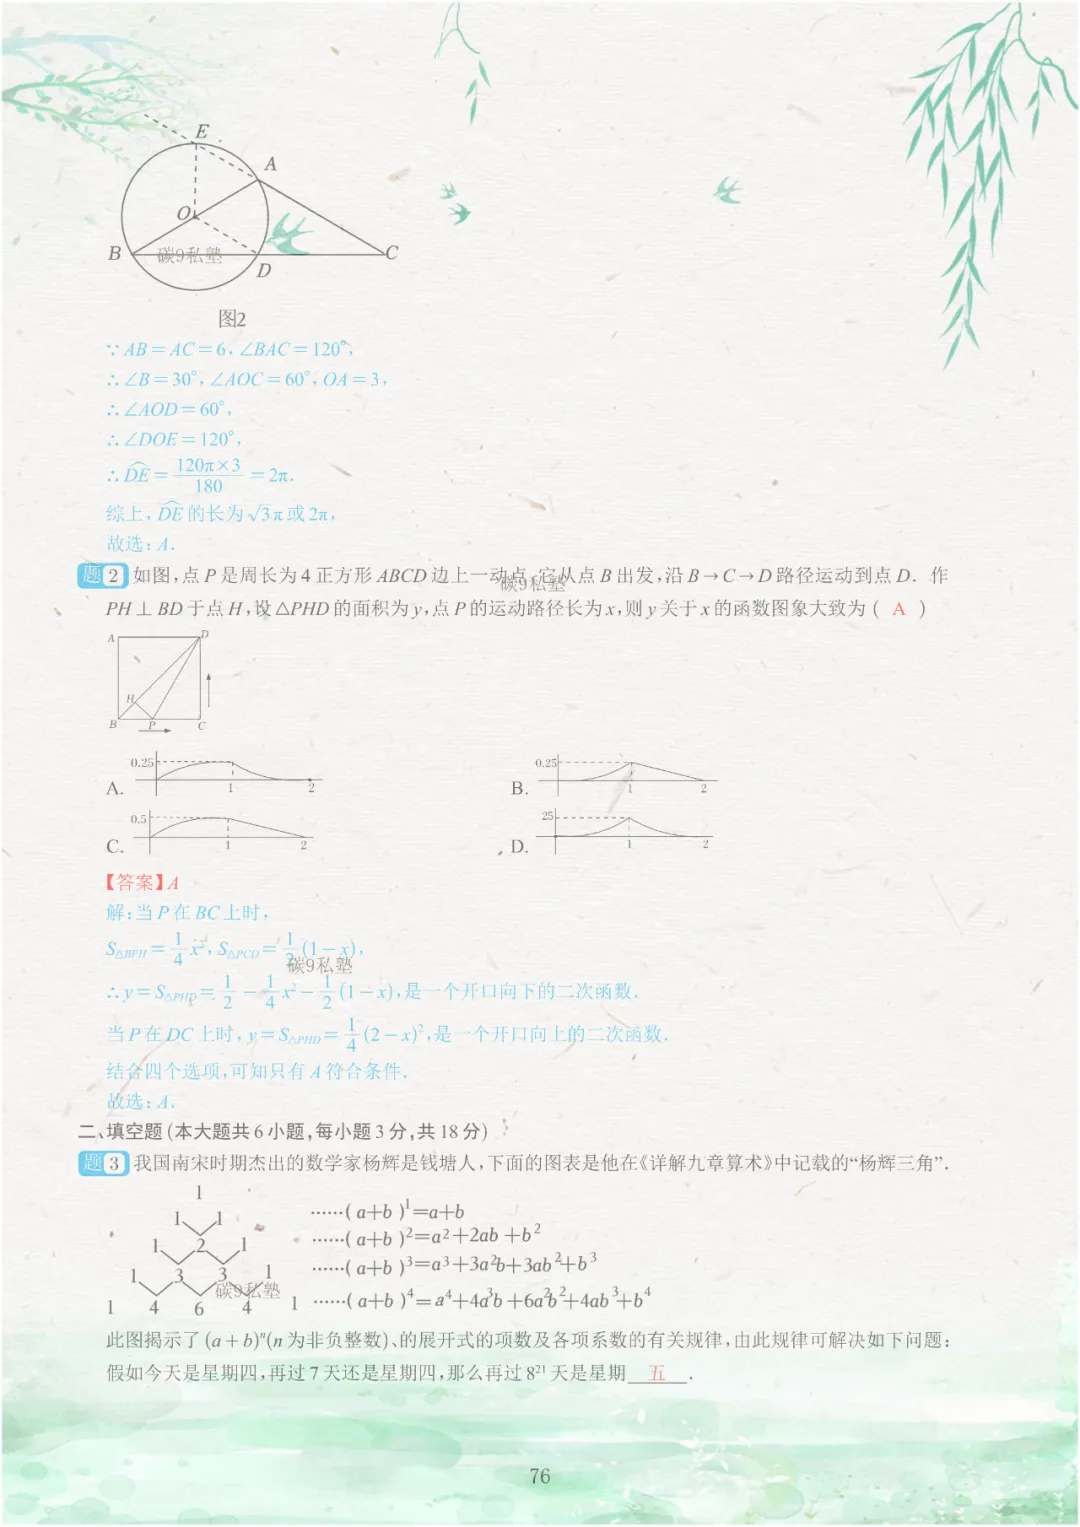 E
A
O
B
碳9私塾
D
C
图2
∵AB=AC=6,∠BAC=120°,
∴∠B=30°,∠AOC=60°,OA=3,
∴∠AOD=60°,
∴∠DOE=120°,
∴DE⌢=120π×3/180=2π.
综上,DE⌢的长为√3π或2π,
故选:A.
题2 如图,点P是周长为4正方形ABCD边上一动点,它从点B出发,沿B→C→D路径运动到点D.作
碳9私塾
PH⊥BD于点H,设△PHD的面积为y,点P的运动路径长为x,则y关于x的函数图象大致为( A )
A D
H
B P C
A. 0.25 1 2
B. 0.25 1 2
C. 0.5 1 2
D. 25 1 2
【答案】A
解:当P在BC上时,
S△BPH=1/4x²,S△PCD=1/2(1-x),
碳9私塾
∴y=S△PHD=1/2-1/4x²-1/2(1-x),是一个开口向下的二次函数.
当P在DC上时,y=S△PHD=1/4(2-x)²,是一个开口向上的二次函数.
结合四个选项,可知只有A符合条件.
故选:A.
二、填空题(本大题共6小题,每小题3分,共18分)
题3 我国南宋时期杰出的数学家杨辉是钱塘人,下面的图表是他在《详解九章算术》中记载的“杨辉三角”.
1
1 1 ……(a+b)¹=a+b
1 2 1 ……(a+b)²=a²+2ab+b²
1 3 3 1 ……(a+b)³=a³+3a²b+3ab²+b³
碳9私塾
1 4 6 4 1 ……(a+b)⁴=a⁴+4a³b+6a²b²+4ab³+b⁴
此图揭示了(a+b)ⁿ(n为非负整数)、的展开式的项数及各项系数的有关规律,由此规律可解决如下问题:
假如今天是星期四,再过7天还是星期四,那么再过8²¹天是星期 五 .
76